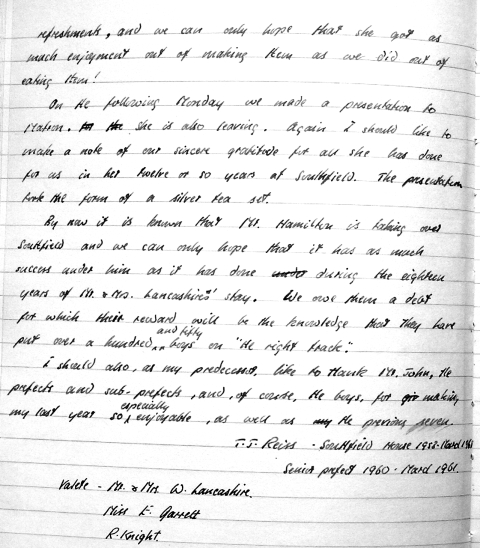 refreshments, and we can only hope that she got as
much enjoyment out of making them as we did out of
eating them!
On the following Monday we made a presentation to
Matron. She is also leaving. Again I should like to
make a note of our sincere gratitude for all she has done
for us in her twelve or so years at Southfield. The presentation
took the form of a silver tea set.
By now it is known that Mr. Hamilton is taking over
Southfield and we can only hope that it has as much
success under him as it has done under during the eighteen
years of Mr. & Mrs. Lancashires' stay. We owe them a debt
for which their reward will be the knowledge that they have
and fifty
put over a hundred boys on "the right track".
I should also, as my predecessor, like to thank Mr. John, the
prefects and sub-prefects, and, of course, the boys, for making
especially
my last year so enjoyable, as well as my the previous seven.
T.J. Reiss - Southfield House 1955-March 1961
Senior prefect 1960-March 1961.
Valete - Mr. & Mrs W. Lancashire.
Miss E. Garrett
R. Knight.